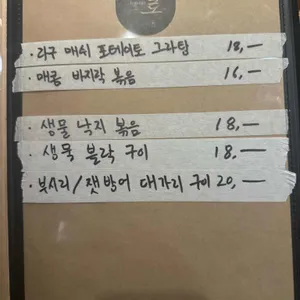 · 라구 매쉬 포테이토 그라탕 18,-
· 매콤 바지락 볶음 16,-
· 생물 낙지 볶음 18,-
· 생물 볼락 구이 18,-
· 부시리/잿방어 대가리 구이 20,-